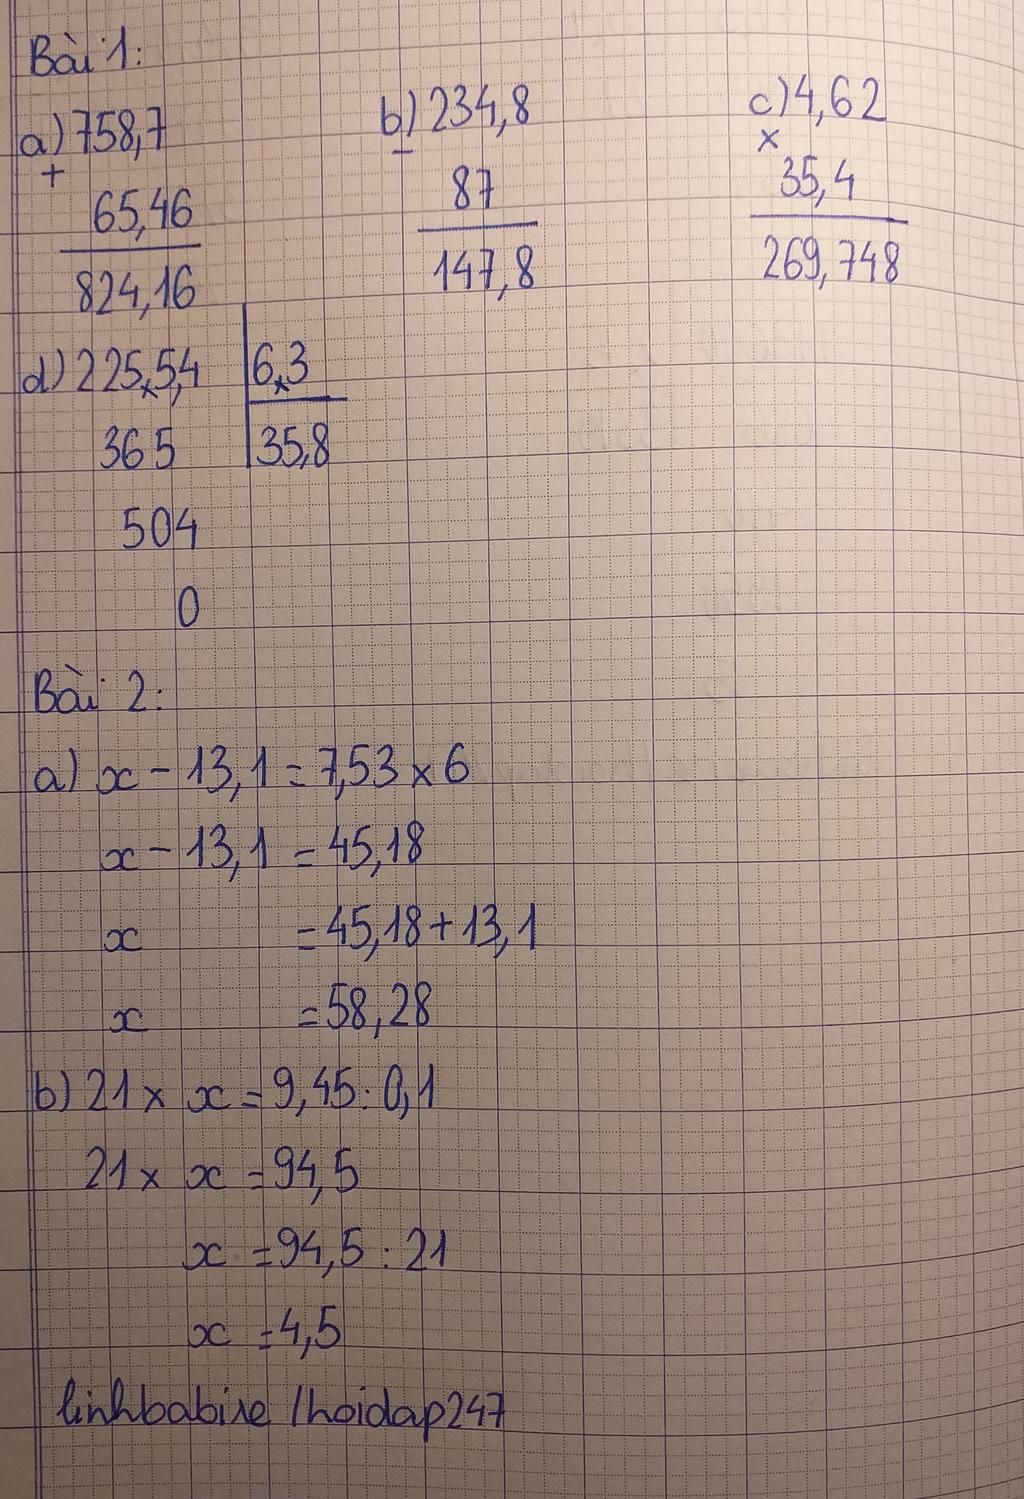 Bài 1:
a) 758,7 b) 234,8 c) 4,62
+ - ×
65,46 87 35,4
824,16 147,8 269,748
d) 225,5,4 6,3
365 35,8
504
0
Bài 2:
a) x - 13,1 = 7,53 × 6
x - 13,1 = 45,18
x = 45,18 + 13,1
x = 58,28
b) 21 × x = 9,45 : 0,1
21 × x = 94,5
x = 94,5 : 21
x = 4,5
linhbabixe /hoidap247